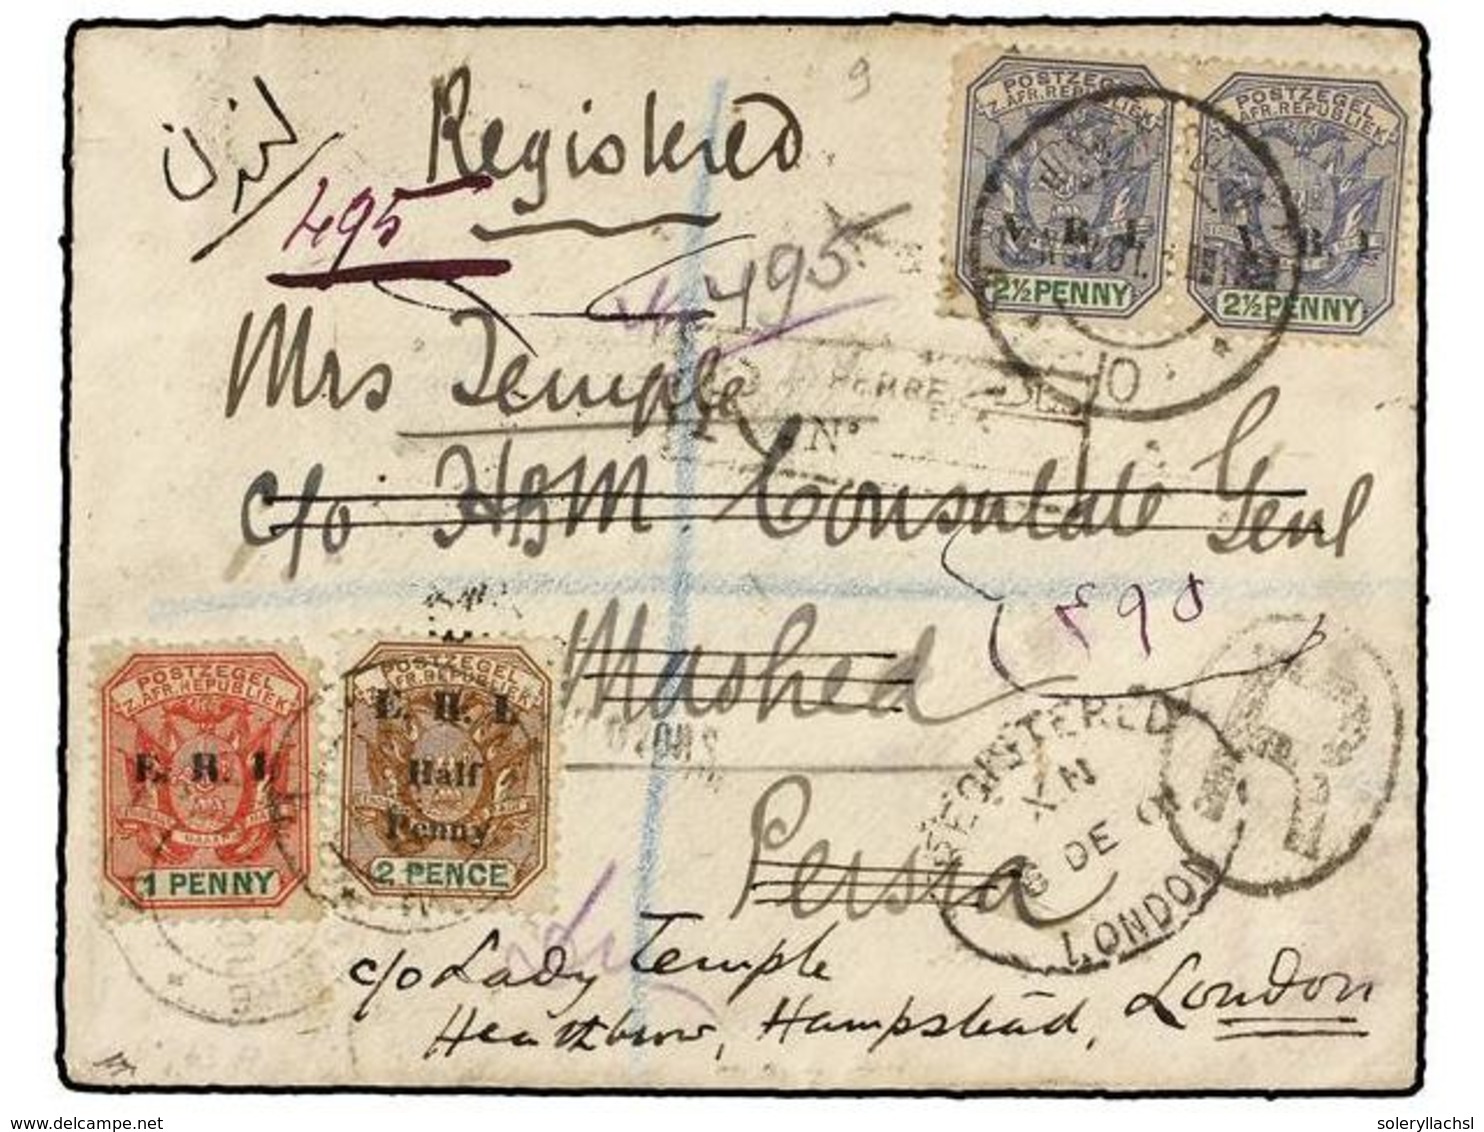 9
Registered
لندن
495
495
POSTZEGEL
Z. AFR. REPUBLIEK
V. R. I.
2½ PENNY
POSTZEGEL
Z. AFR. REPUBLIEK
V. R. I.
2½ PENNY
Mrs Temple
No
c/o HBM Consulate Genl
۴۹۵
Mashed
Persia
POSTZEGEL
Z. AFR. REPUBLIEK
E. R. I.
1 PENNY
POSTZEGEL
Z. AFR. REPUBLIEK
E. R. I.
Half
Penny
2 PENCE
R
REGISTERED
XN
6 DE 01
LONDON
c/o Lady Temple
Heathbrow, Hampstead, London
www.delcampe.net
soleryllachsl